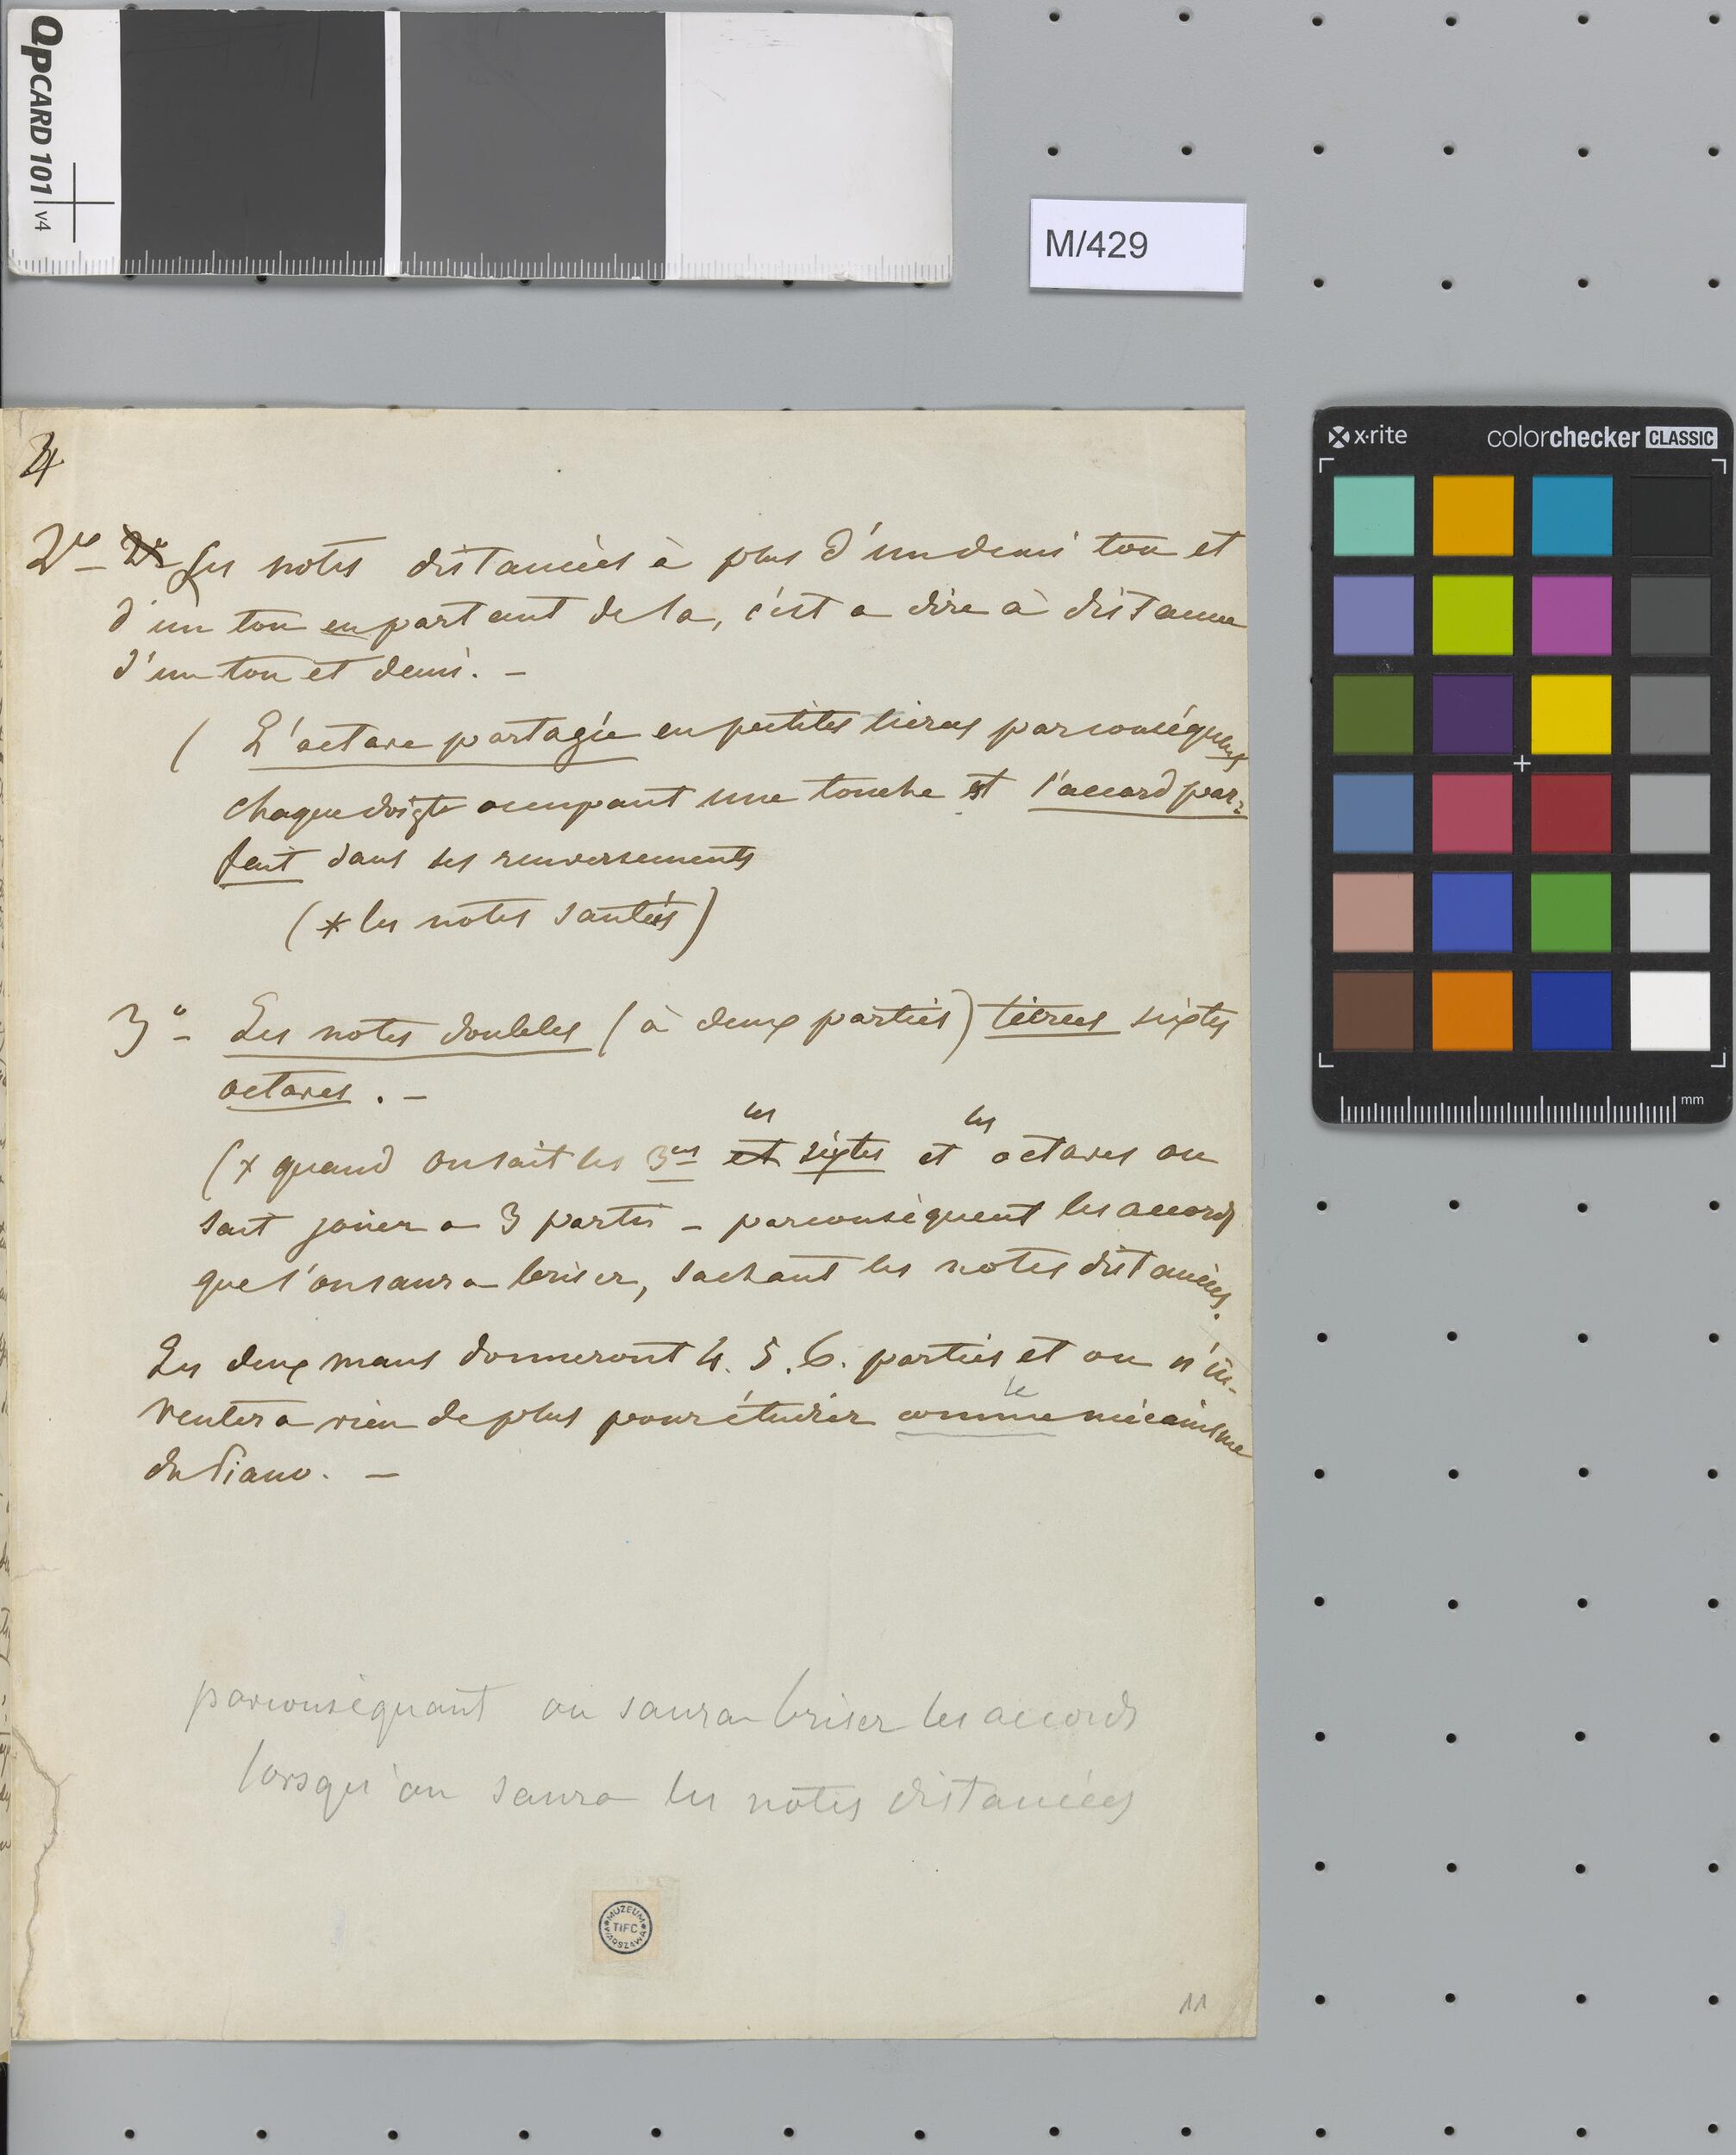 QPCARD 101 v4
M/429
x·rite colorchecker CLASSIC
mm
2o - Les notes distancées à plus d'un demi ton et
d'un ton en partant de la, c'est a dire à distance
d'un ton et demi. -
( L'octave partagée en petites tierces par conséquent
chaque doigt occupant une touche et l'accord par=
fait dans ses renversements
(* les notes sautées)
3o - Les notes doubles (à deux parties) tierces sixtes
octaves. -
(x quand on sait les 3ces et les sixtes et les octaves on
sait jouer a 3 partis - parconséquent les accords
que l'on saura briser, sachant les notes distancées.
Les deux mains donneront 4. 5. 6. parties et on n'in-
ventera rien de plus pour étudier comme le mécanisme
du Piano. -
parconséquant on saura briser les accords
lorsqu'on saura les notes distancées
MUZEUM TIFC WARSZAWA
11